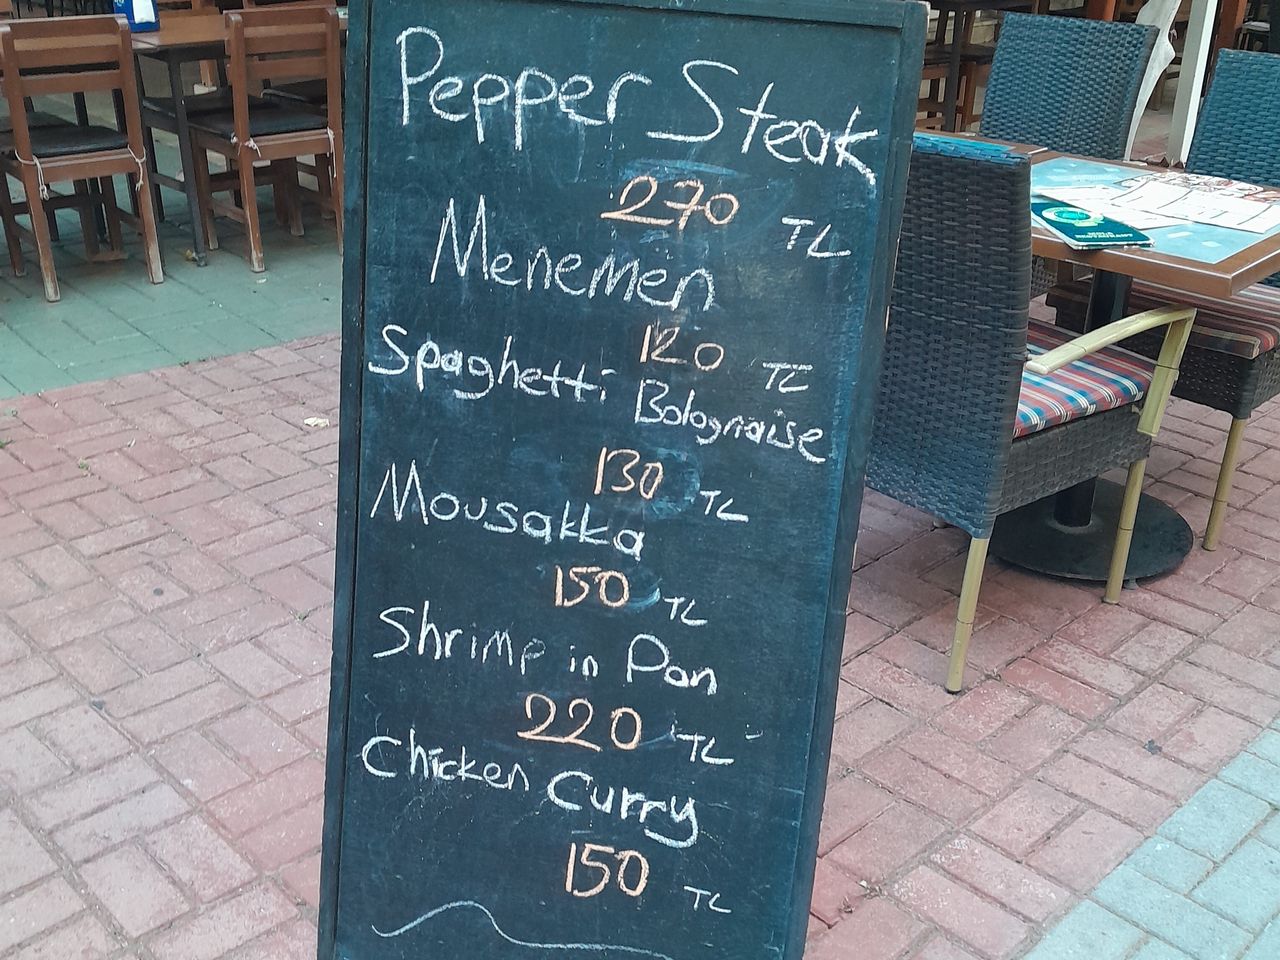 Pepper Steak
270 TL
Menemen
120 TL
Spaghetti Bolognaise
130 TL
Mousakka
150 TL
Shrimp in Pan
220 TL
Chicken Curry
150 TL